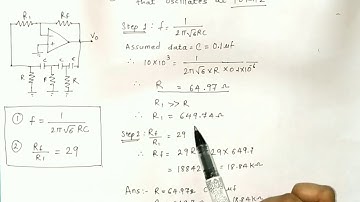 that oscillates at
R1
Rf
V0
C
C
C
R
R
R
① f = 1/2π√6 RC
② Rf/R1 = 29
Step 1 : f = 1/2π√6 RC
Assumed data = C = 0.1 μf
∴ 10 x 10³ = 1/2π√6 x R x 0.1 x 10⁻⁶
∴ R = 64.97 Ω
R1 >> R
∴ R1 = 649.7 Ω
Step 2 : Rf/R1 = 29
∴ Rf = 29R
= 29 x 649.7
= 18842
= 18.84 kΩ
Ans :- R = 64.97Ω